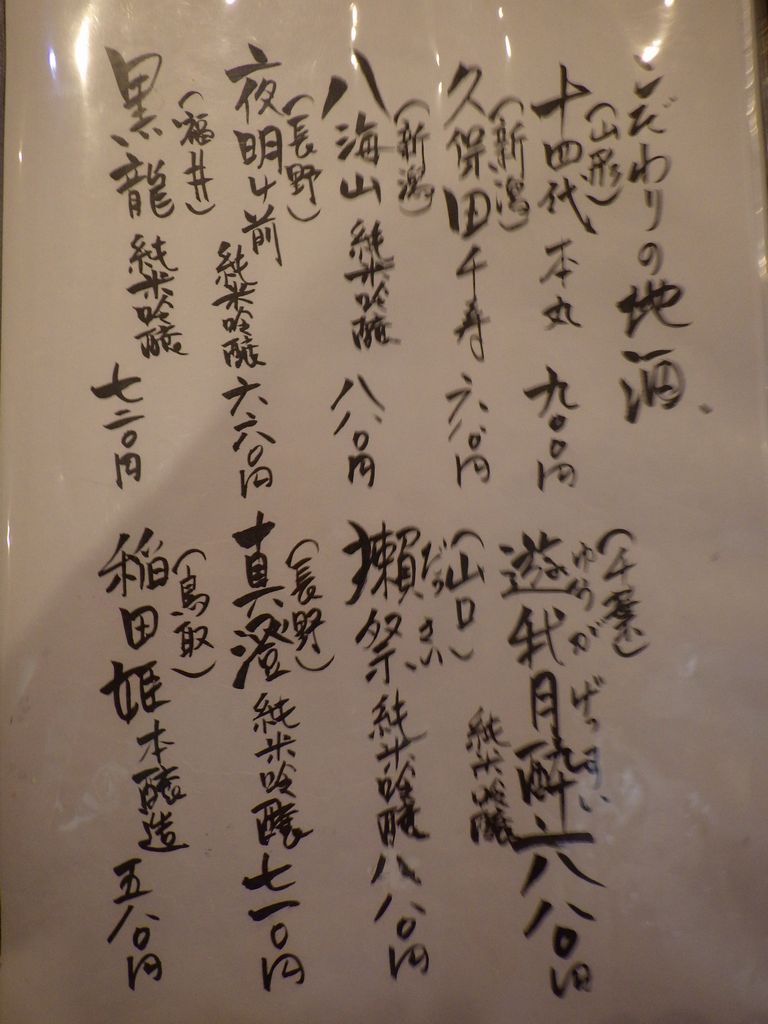 こだわりの地酒、
(山形)
十四代 本丸 九〇〇円
(新潟)
久保田 千寿 六八〇円
(新潟)
八海山 純米吟醸 八八〇円
(長野)
夜明け前 純米吟醸 六六〇円
(福井)
黒龍 純米吟醸 七二〇円
(千葉)
ゆうが げっすい
遊我月酔 純米吟醸 八八〇円
(山口)
だっさい
獺祭 純米吟醸 八八〇円
(長野)
真澄 純米吟醸 七一〇円
(鳥取)
稲田姫 本醸造 五八〇円